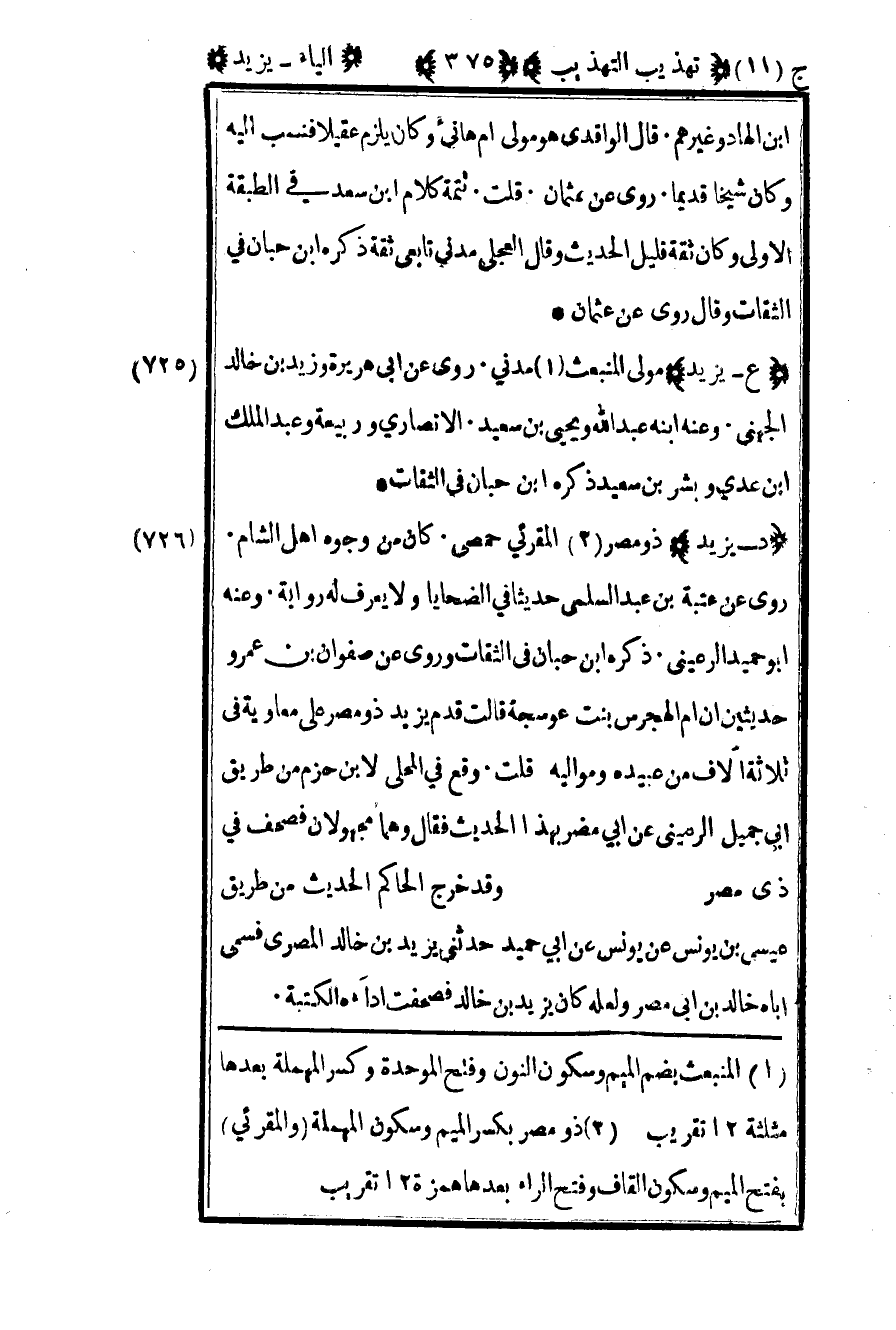 ج (١١) ﴿ تهذيب التهذيب ﴾ ﴿ ٣٧٥ ﴾ ﴿ الياء ـ يزيد ﴾
ابن الهاد وغيرهم · قال الواقدي هو مولى ام هانئ وكان يلزم عقيلا فنسب اليه
وكان شيخا قديما · روى عن عثمان · قلت · تتمة كلام ابن سعد في الطبقة
الاولى وكان ثقة قليل الحديث وقال العجلي مدني تابعي ثقة ذكره ابن حبان في
الثقات وقال روى عن عثمان •
﴿ ع ـ يزيد ﴾ مولى المنبعث (١) مدني · روى عن ابي هريرة وزيد بن خالد (٧٢٥)
الجهني · وعنه ابنه عبدالله ويحيى بن سعيد · الانصاري وربيعة وعبد الملك
ابن عدي وبشر بن سعيد ذكره ابن حبان في الثقات •
﴿ د ـ يزيد ﴾ ذو مصر (٢) المقرئي حمصي · كان من وجوه اهل الشام · (٧٢٦)
روى عن عتبة بن عبد السلمي حديثا في الضحايا ولا يعرف له رواية · وعنه
ابو حميد الرعيني · ذكره ابن حبان في الثقات وروى عن صفوان بن عمرو
حديثين ان ام الهجرس بنت عوسجة قالت قدم يزيد ذو مصر على معاوية في
ثلاثة آلاف من عبيده ومواليه قلت · وقع في المحلى لابن حزم من طريق
ابي جميل الرعيني عن ابي مضر بهذا الحديث فقال وهما مجهولان فصحف في
ذى مصر وقد خرج الحاكم الحديث من طريق
عيسى بن يونس عن يونس عن ابي حميد حدثني يزيد بن خالد المصرى فسمى
اباه خالد بن ابى مصر ولعله كان يزيد بن خالد فصحفت اداءه الكتبة ·
(١) المنبعث بضم الميم وسكون النون وفتح الموحدة وكسر المهملة بعدها
مثلثة ١٢ تقريب (٢) ذو مصر بكسر الميم وسكون المهملة (والمقرئي)
بفتح الميم وسكون القاف وفتح الراء بعدها همزة ١٢ تقريب